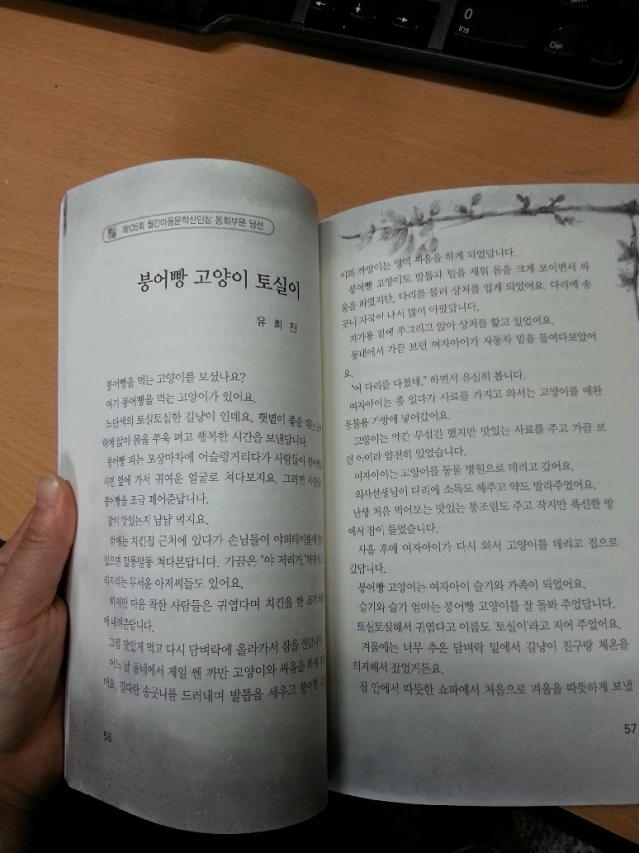 0
Ins
Del
제105회 월간아동문학신인상 동화부문 당선
붕어빵 고양이 토실이
유 희 진
붕어빵을 먹는 고양이를 보셨나요?
여기 붕어빵을 먹는 고양이가 있어요.
노란색의 토실토실한 길냥이 인데요, 햇볕이 좋은
앉아 몸을 쭈욱 펴고 행복한 시간을 보낸답니다.
붕어빵 파는 포장마차에 어슬렁거리다가 사람들이
옆에 가서 귀여운 얼굴로 쳐다보지요. 그러면
붕어빵을 조금 떼어준답니다.
맛있는지 냠냠 먹지요.
밤에는 치킨집 근처에 있다가 손님들이 야외테이블에
있으면 말똥말똥 쳐다본답니다. 가끔은 "야 저리가,"
무서운 아저씨들도 있어요.
하지만 마음 착한 사람들은 귀엽다며 치킨을 한
내려준답니다.
그럼 맛있게 먹고 다시 담벼락에 올라가서 잠을
어느 날 동네에서 제일 쎈 까만 고양이와 싸움을 하게
어요. 길다란 송곳니를 드러내며 발톱을 세우고 붕어빵
56
이와 까망이는 영역 싸움을 하게 되었답니다.
붕어빵 고양이도 발톱과 털을 세워 몸을 크게 보이면서 싸
움을 하였지만, 다리를 물려 상처를 입게 되었어요. 다리에 송
곳니 자국이 나서 많이 아팠답니다.
자가용 밑에 쭈그리고 앉아 상처를 핥고 있었어요.
동네에서 가끔 보던 여자아이가 자동차 밑을 들여다보았어
요.
"어 다리를 다쳤네." 하면서 유심히 봅니다.
여자아이는 좀 있다가 사료를 가지고 와서는 고양이를 애완
동물용 가방에 넣어갔어요.
고양이는 약간 무섭긴 했지만 맛있는 사료를 주고 가끔 보
던 아이라 얌전히 있었습니다.
여자아이는 고양이를 동물 병원으로 데리고 갔어요.
의사선생님이 다리에 소독도 해주고 약도 발라주었어요.
난생 처음 먹어보는 맛있는 통조림도 주고 작지만 푹신한 방
에서 잠이 들었습니다.
사흘 후에 여자아이가 다시 와서 고양이를 데리고 집으로
갔답니다.
붕어빵 고양이는 여자아이 슬기와 가족이 되었어요.
슬기와 슬기 엄마는 붕어빵 고양이를 잘 돌봐 주었답니다.
토실토실해서 귀엽다고 이름도 '토실이'라고 지어 주었어요.
겨울에는 너무 추운 담벼락 밑에서 길냥이 친구랑 체온을
의지해서 잤었거든요.
집 안에서 따뜻한 쇼파에서 처음으로 겨울을 따뜻하게 보냈
57